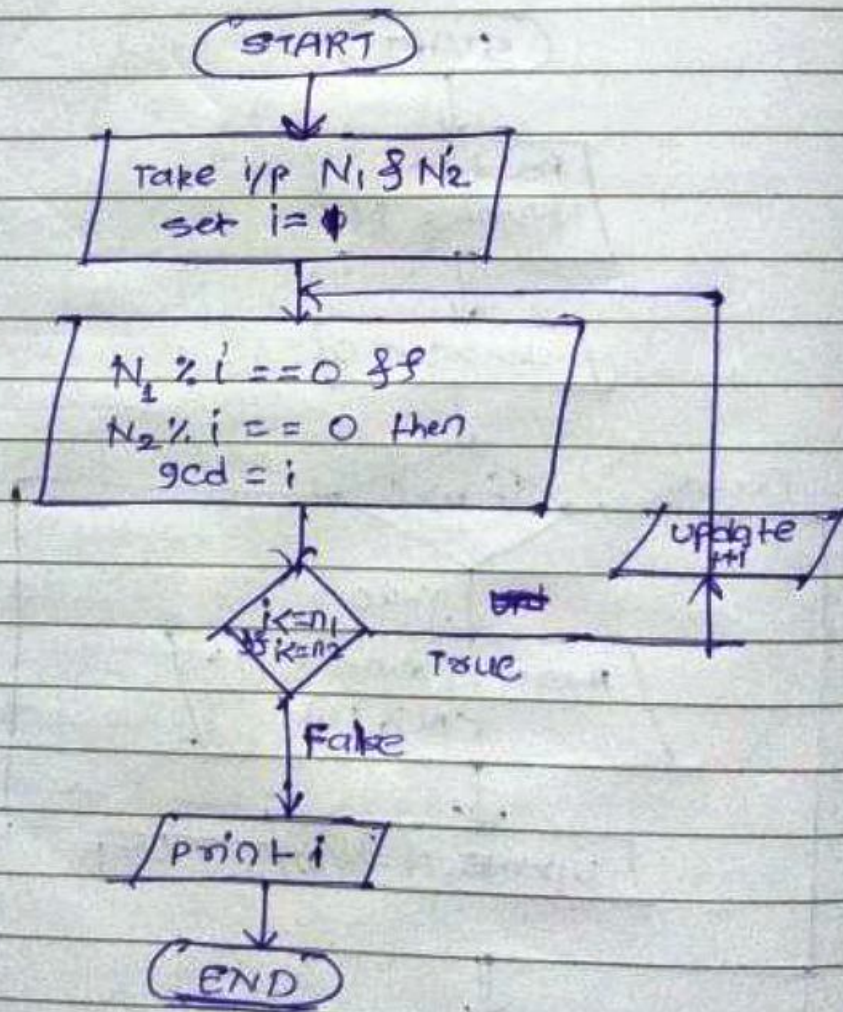 START
Take i/p N1 & N2
set i=1
N1 % i ==0 &&
N2 % i == 0 then
gcd = i
update
++i
i<=n1
&& i<=n2
True
False
print i
END